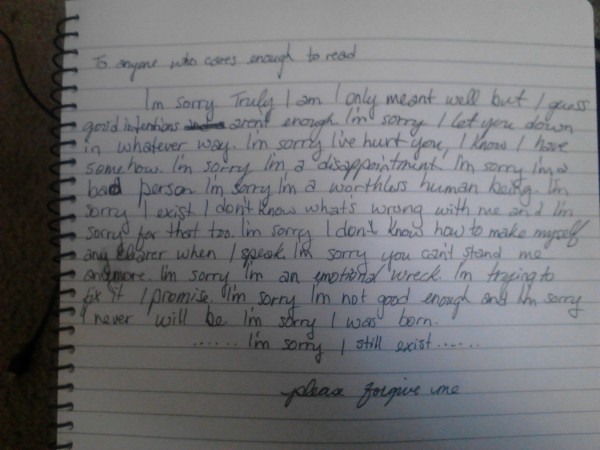 To anyone who cares enough to read
I'm sorry Truly I am I only meant well but I guess
good intentions arent enough. I'm sorry I let you down
in whatever way. I'm sorry I've hurt you, I know I have
somehow. I'm sorry I'm a disappointment, I'm sorry I'm a
bad person I'm sorry I'm a worthless human being. I'm
sorry I exist I don't know what's wrong with me and I'm
sorry for that too. I'm sorry I don't know how to make myself
any clearer when I speak. I'm sorry you can't stand me
anymore. I'm sorry I'm an emotional wreck. I'm trying to
fix it I promise. I'm sorry I'm not good enough and I'm sorry
I never will be. I'm sorry I was born.
...... I'm sorry I still exist......
please forgive me